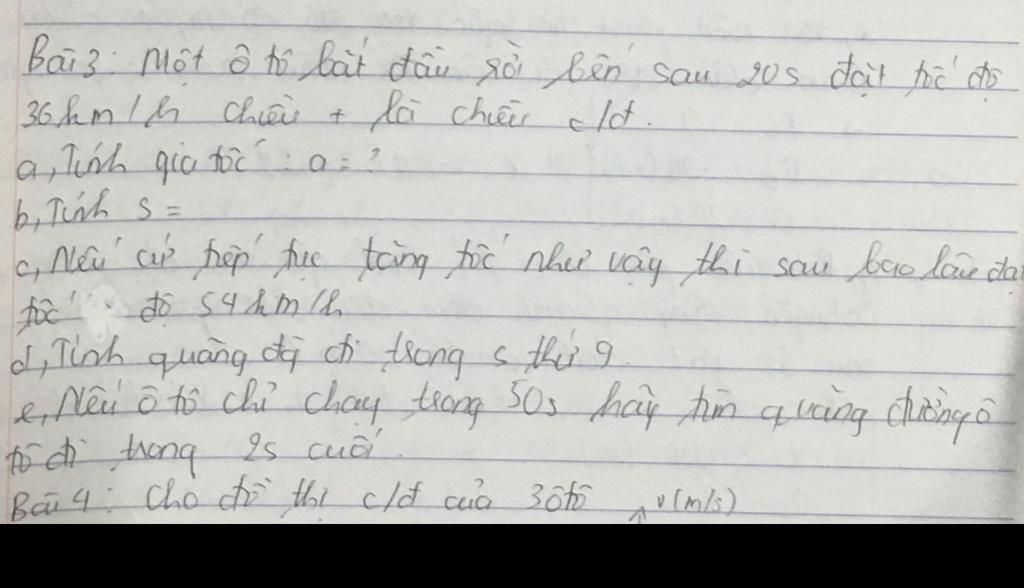 Bài 3: Một ô tô bắt đầu rời bến sau 20s đạt tốc độ
36km/h chiều + là chiều c/đ.
a, Tính gia tốc : a = ?
b, Tính s =
c, Nếu cứ tiếp tục tăng tốc như vậy thì sau bao lâu đạ
tốc độ 54km/h
d, Tính quãng đg đi trong s thứ 9.
e, Nếu ô tô chỉ chạy trong 50s hãy tìm quãng đường ô
tô đi trong 2s cuối.
Bài 4: Cho đồ thị c/đ của 3ôtô v(m/s)